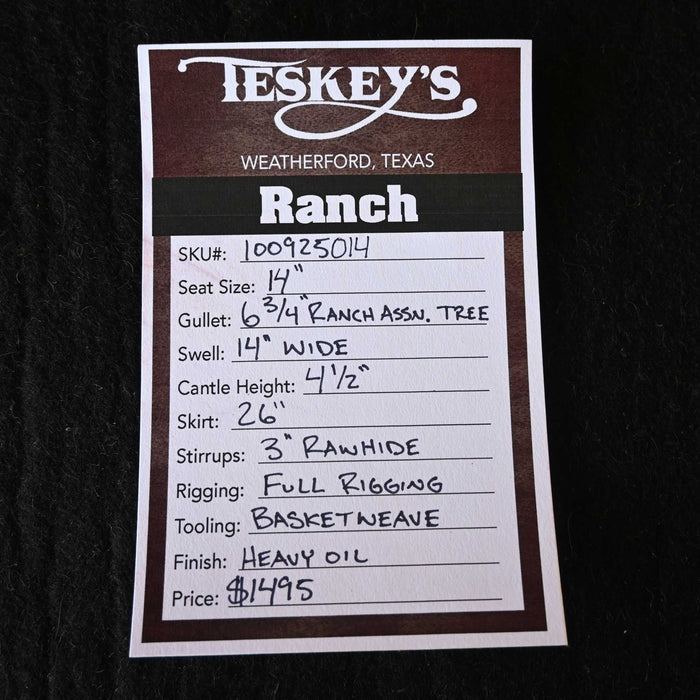 TESKEY'S
WEATHERFORD, TEXAS
Ranch
SKU#: 100925014
Seat Size: 14"
Gullet: 6 3/4" RANCH ASSN. TREE
Swell: 14" WIDE
Cantle Height: 4 1/2"
Skirt: 26"
Stirrups: 3" RAWHIDE
Rigging: FULL RIGGING
Tooling: BASKETWEAVE
Finish: HEAVY OIL
Price: $1495